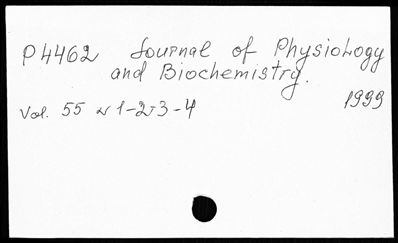 P4462 Journal of Physiology
and Biochemistry.
1999
Vol. 55 N 1-2-3-4